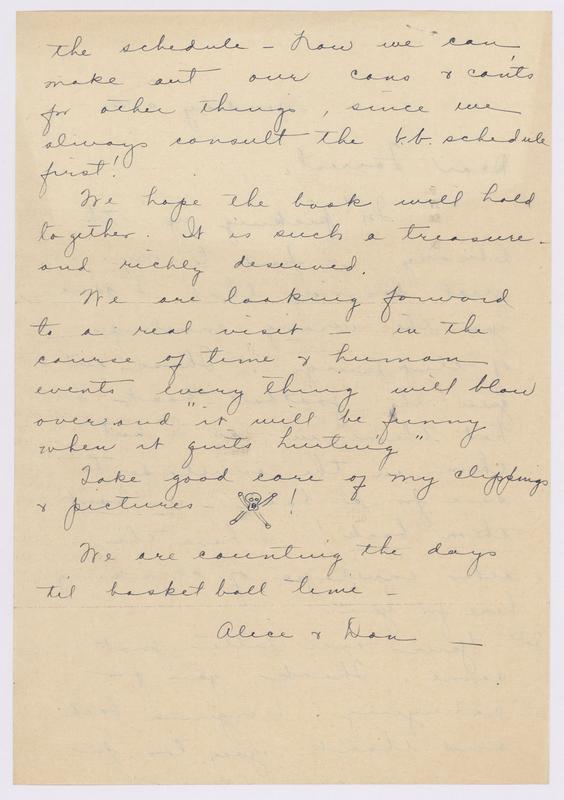 the schedule - Now we can
make out our cans & can'ts
for other things, since we
always consult the b.b. schedule
first!
We hope the book will hold
together. It is such a treasure -
and richly deserved.
We are looking forward
to a real visit - in the
course of time & human
events every thing will blow
over and "it will be funny
when it quits hurting"
Take good care of my clippings
& pictures !
We are counting the days
til basket ball time -
Alice & Don -